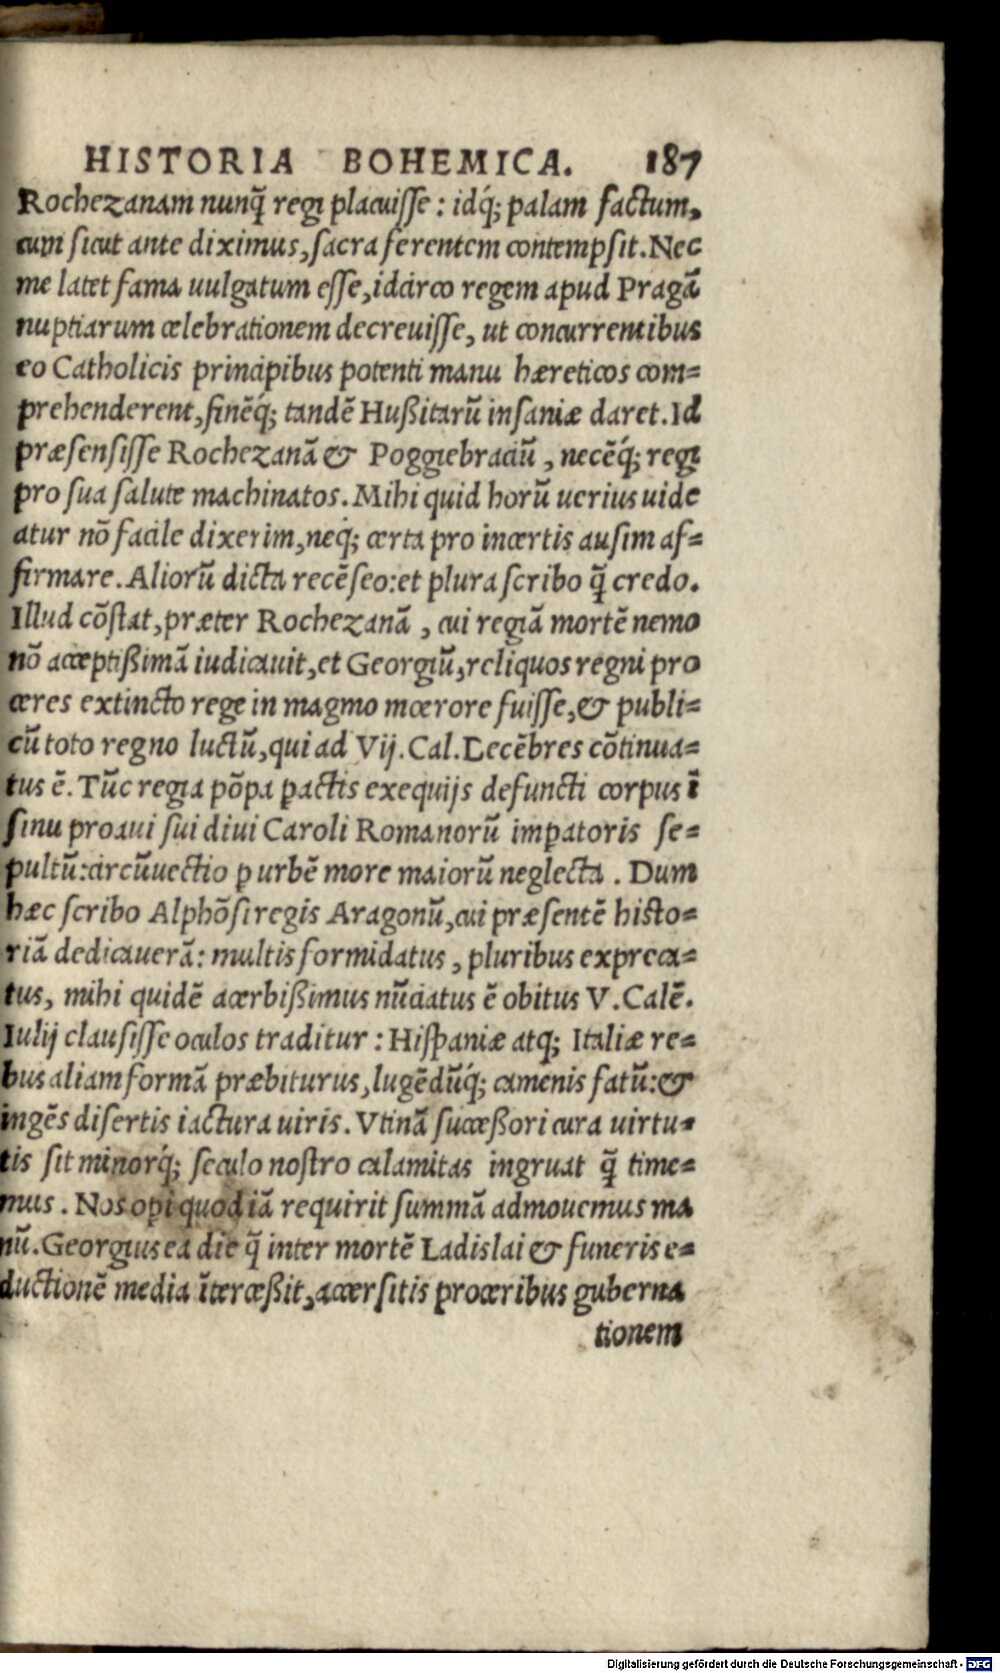 HISTORIA BOHEMICA. 187
Rochezanam nunq̃ regi placuisse : idq́; palam factum,
cum sicut ante diximus, sacra ferentem contempsit. Nec
me latet fama uulgatum esse, idcirco regem apud Pragã
nuptiarum celebrationem decreuisse, ut concurrentibus
eo Catholicis principibus potenti manu hæreticos com=
prehenderent, finẽq́; tandẽ Hußitarũ insaniæ daret. Id
præsensisse Rochezanã & Poggiebraciũ , necẽq́; regi
pro sua salute machinatos. Mihi quid horũ uerius uide
atur nõ facile dixerim, neq́; certa pro incertis ausim af=
firmare. Aliorũ dicta recẽseo: et plura scribo q̃ credo.
Illud cõstat, præter Rochezanã , cui regiã mortẽ nemo
nõ acceptißimã iudicauit, et Georgiũ, reliquos regni pro
ceres extincto rege in magmo mœrore fuisse, & publi=
cũ toto regno luctũ, qui ad Vij. Cal. Decẽbres cõtinua=
tus ẽ. Tũc regia põpa ꝑactis exequijs defuncti corpus ĩ
sinu proaui sui diui Caroli Romanorũ imꝑatoris se=
pultũ: circũuectio ꝑ urbẽ more maiorũ neglecta . Dum
hæc scribo Alphõsi regis Aragonũ, cui præsentẽ histo=
riã dedicauerã: multis formidatus , pluribus expreca=
tus, mihi quidẽ acerbißimus nũciatus ẽ obitus V. Calẽ.
Iulij clausisse oculos traditur : Hispaniæ atq; Italiæ re=
bus aliam formã præbiturus, lugẽdũq́; camenis fatũ: &
ingẽs disertis iactura uiris. Vtinã successori cura uirtu=
tis sit minorq́; seculo nostro calamitas ingruat q̃ time=
mus . Nos oꝑi quod iã requirit summã admouemus ma
nũ. Georgius ea die q̃ inter mortẽ Ladislai & funeris e=
ductionẽ media ĩterceßit, accersitis proceribus guberna
tionem
Digitalisierung gefördert durch die Deutsche Forschungsgemeinschaft - DFG